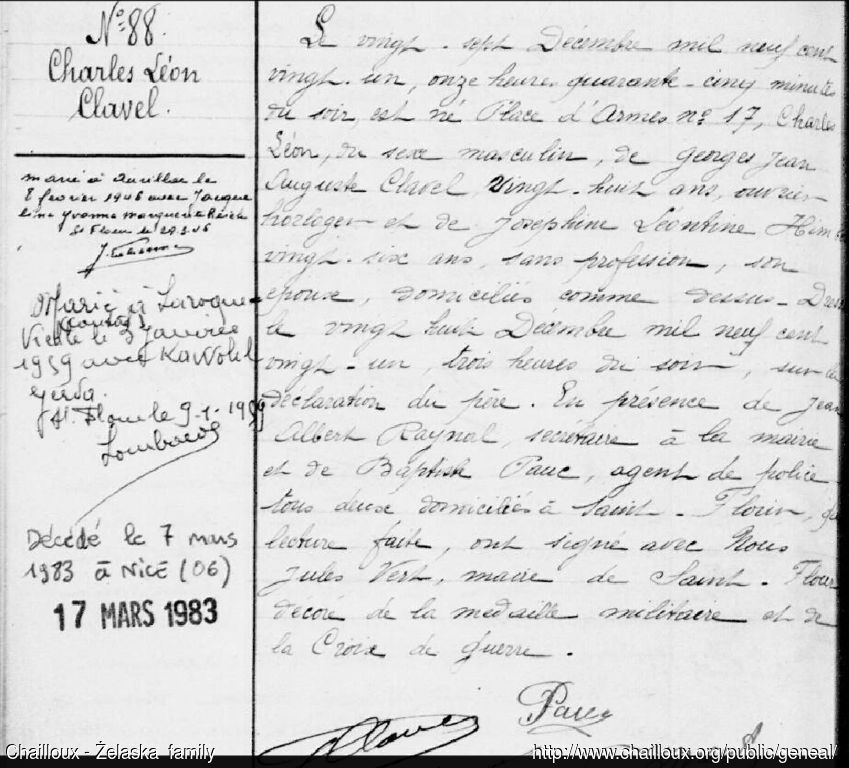 N° 88
Charles Léon
Clavel.
marié à Aurillac le
février 1946 avec Jacque
line Yvonne Marguerite
St Flour le
Marié à Laroque-
Vieille le 3 Janvier
1959 avec Kawohl
Gerda.
St Flour le 9-1-1959
Décédé le 7 mars
1983 à NICE (06)
17 MARS 1983
Le vingt-sept Décembre mil neuf cent
vingt-un, onze heures quarante-cinq minutes
du soir, est né Place d'Armes n° 17, Charles
Léon, du sexe masculin, de Georges Jean
Auguste Clavel, vingt-huit ans, ouvrier
horloger et de Joséphine Léontine
vingt-six ans, sans profession, son
épouse, domiciliés comme dessus_
le vingt huit Décembre mil neuf cent
vingt-un, trois heures du soir, sur
déclaration du père. En présence de Jean
Albert Raynal, secrétaire à la mairie
et de Baptiste Pauc, agent de police
tous deux domiciliés à Saint-Flour,
lecture faite, ont signé avec Nous
Jules Vert, maire de Saint-Flour
décoré de la médaille militaire et de
la Croix de guerre.
Pauc
Clavel
Chailloux - Żelaska family
http://www.chailloux.org/public/geneal/